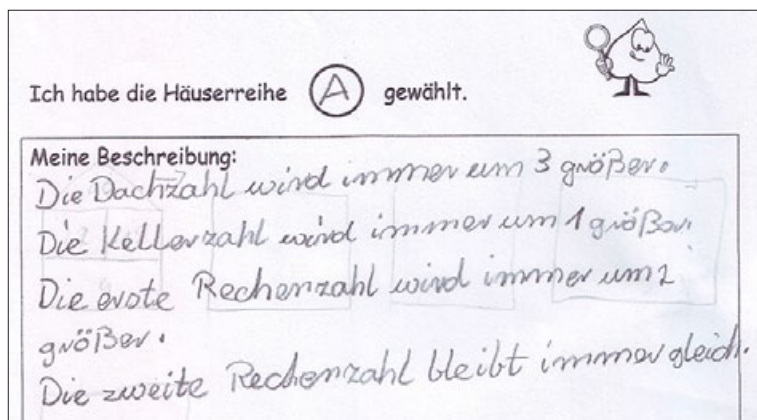 Ich habe die Häuserreihe A gewählt.
Meine Beschreibung:
Die Dachzahl wird immer um 3 größer.
Die Kellerzahl wird immer um 1 größer.
Die erste Rechenzahl wird immer um 2
größer.
Die zweite Rechenzahl bleibt immer gleich.